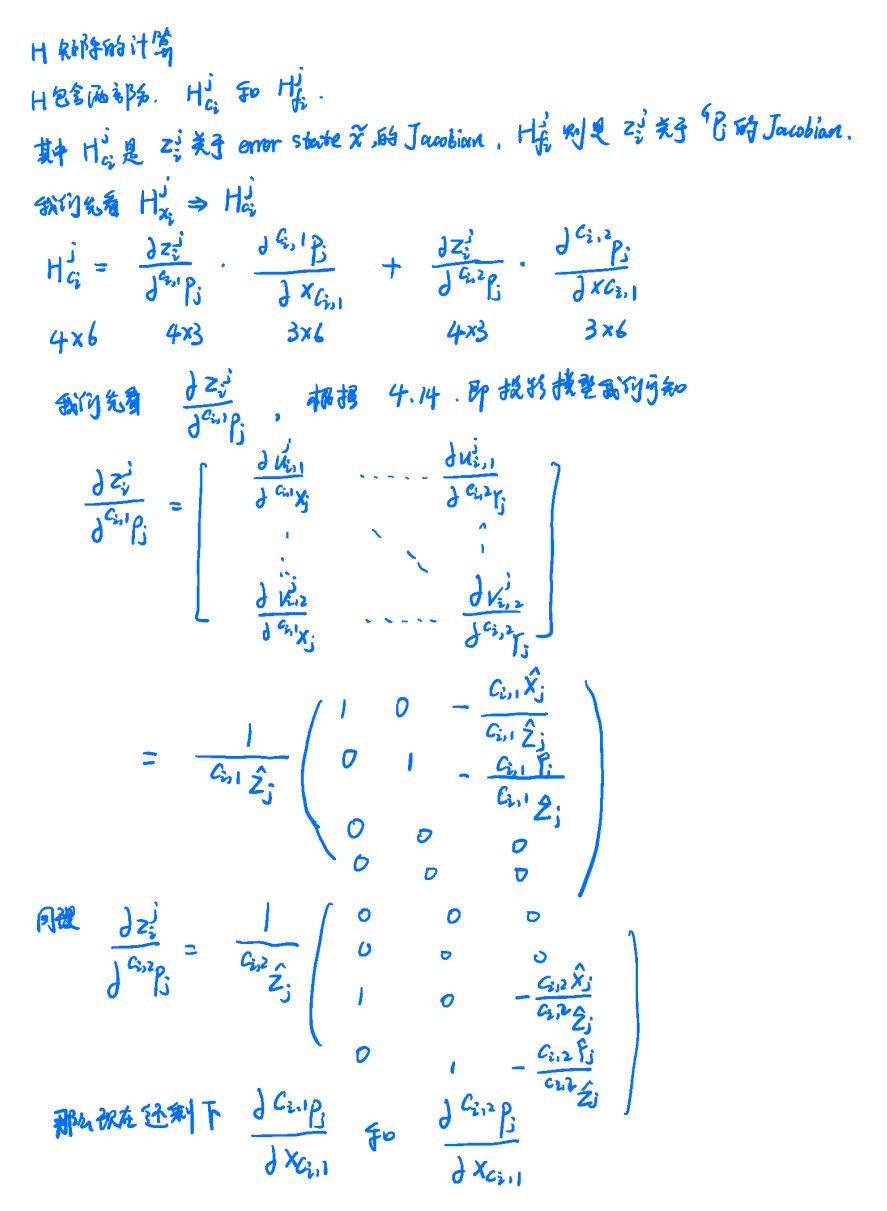 H 矩阵的计算
H包含两部分. H_{c_i}^j 和 H_{f_i}^j .
其中 H_{c_i}^j 是 z_i^j 关于 error state x̃ 的 Jacobian, H_{f_i}^j 则是 z_i^j 关于 ^G P_j 的 Jacobian.
我们先看 H_{x_i}^j ⇒ H_{c_i}^j
H_{c_i}^j = ∂z_i^j / ∂^{c_{i,1}}p_j · ∂^{c_{i,1}}p_j / ∂x_{c_{i,1}} + ∂z_i^j / ∂^{c_{i,2}}p_j · ∂^{c_{i,2}}p_j / ∂x_{c_{i,1}}
4×6 4×3 3×6 4×3 3×6
我们先看 ∂z_i^j / ∂^{c_{i,1}}p_j , 根据 4.14 . 即投影模型我们可知
∂z_i^j / ∂^{c_{i,1}}p_j = [ ∂u_{i,1}^j / ∂^{c_{i,1}}X_j ..... ∂u_{i,1}^j / ∂^{c_{i,2}}Y_j
⋮ ⋱ ⋮
∂v_{i,2}^j / ∂^{c_{i,1}}X_j ..... ∂v_{i,2}^j / ∂^{c_{i,2}}Y_j ]
= 1 / ^{c_{i,1}}Ẑ_j ( 1 0 - ^{c_{i,1}}X̂_j / ^{c_{i,1}}Ẑ_j
0 1 - ^{c_{i,1}}Ŷ_j / ^{c_{i,1}}Ẑ_j
0 0 0
0 0 0 )
同理 ∂z_i^j / ∂^{c_{i,2}}p_j = 1 / ^{c_{i,2}}Ẑ_j ( 0 0 0
0 0 0
1 0 - ^{c_{i,2}}X̂_j / ^{c_{i,2}}Ẑ_j
0 1 - ^{c_{i,2}}Ŷ_j / ^{c_{i,2}}Ẑ_j )
那么现在还剩下 ∂^{c_{i,1}}p_j / ∂x_{c_{i,1}} 和 ∂^{c_{i,2}}p_j / ∂x_{c_{i,1}}